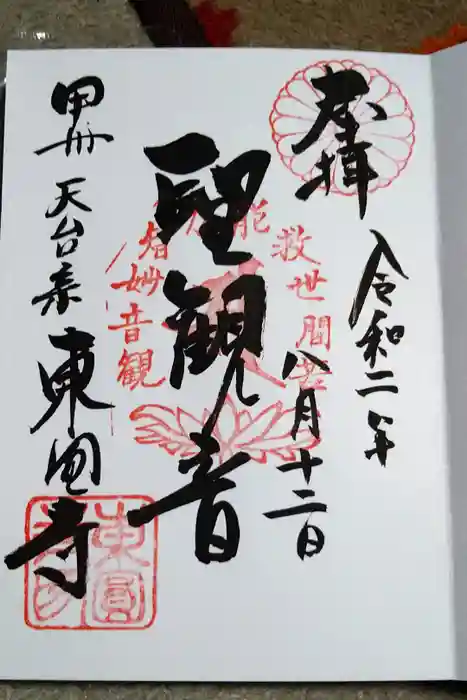 奉拝
令和二年
八月十二日
聖観音
救世間苦
能
妙音観
甲州 天台宗 東圓寺
東圓